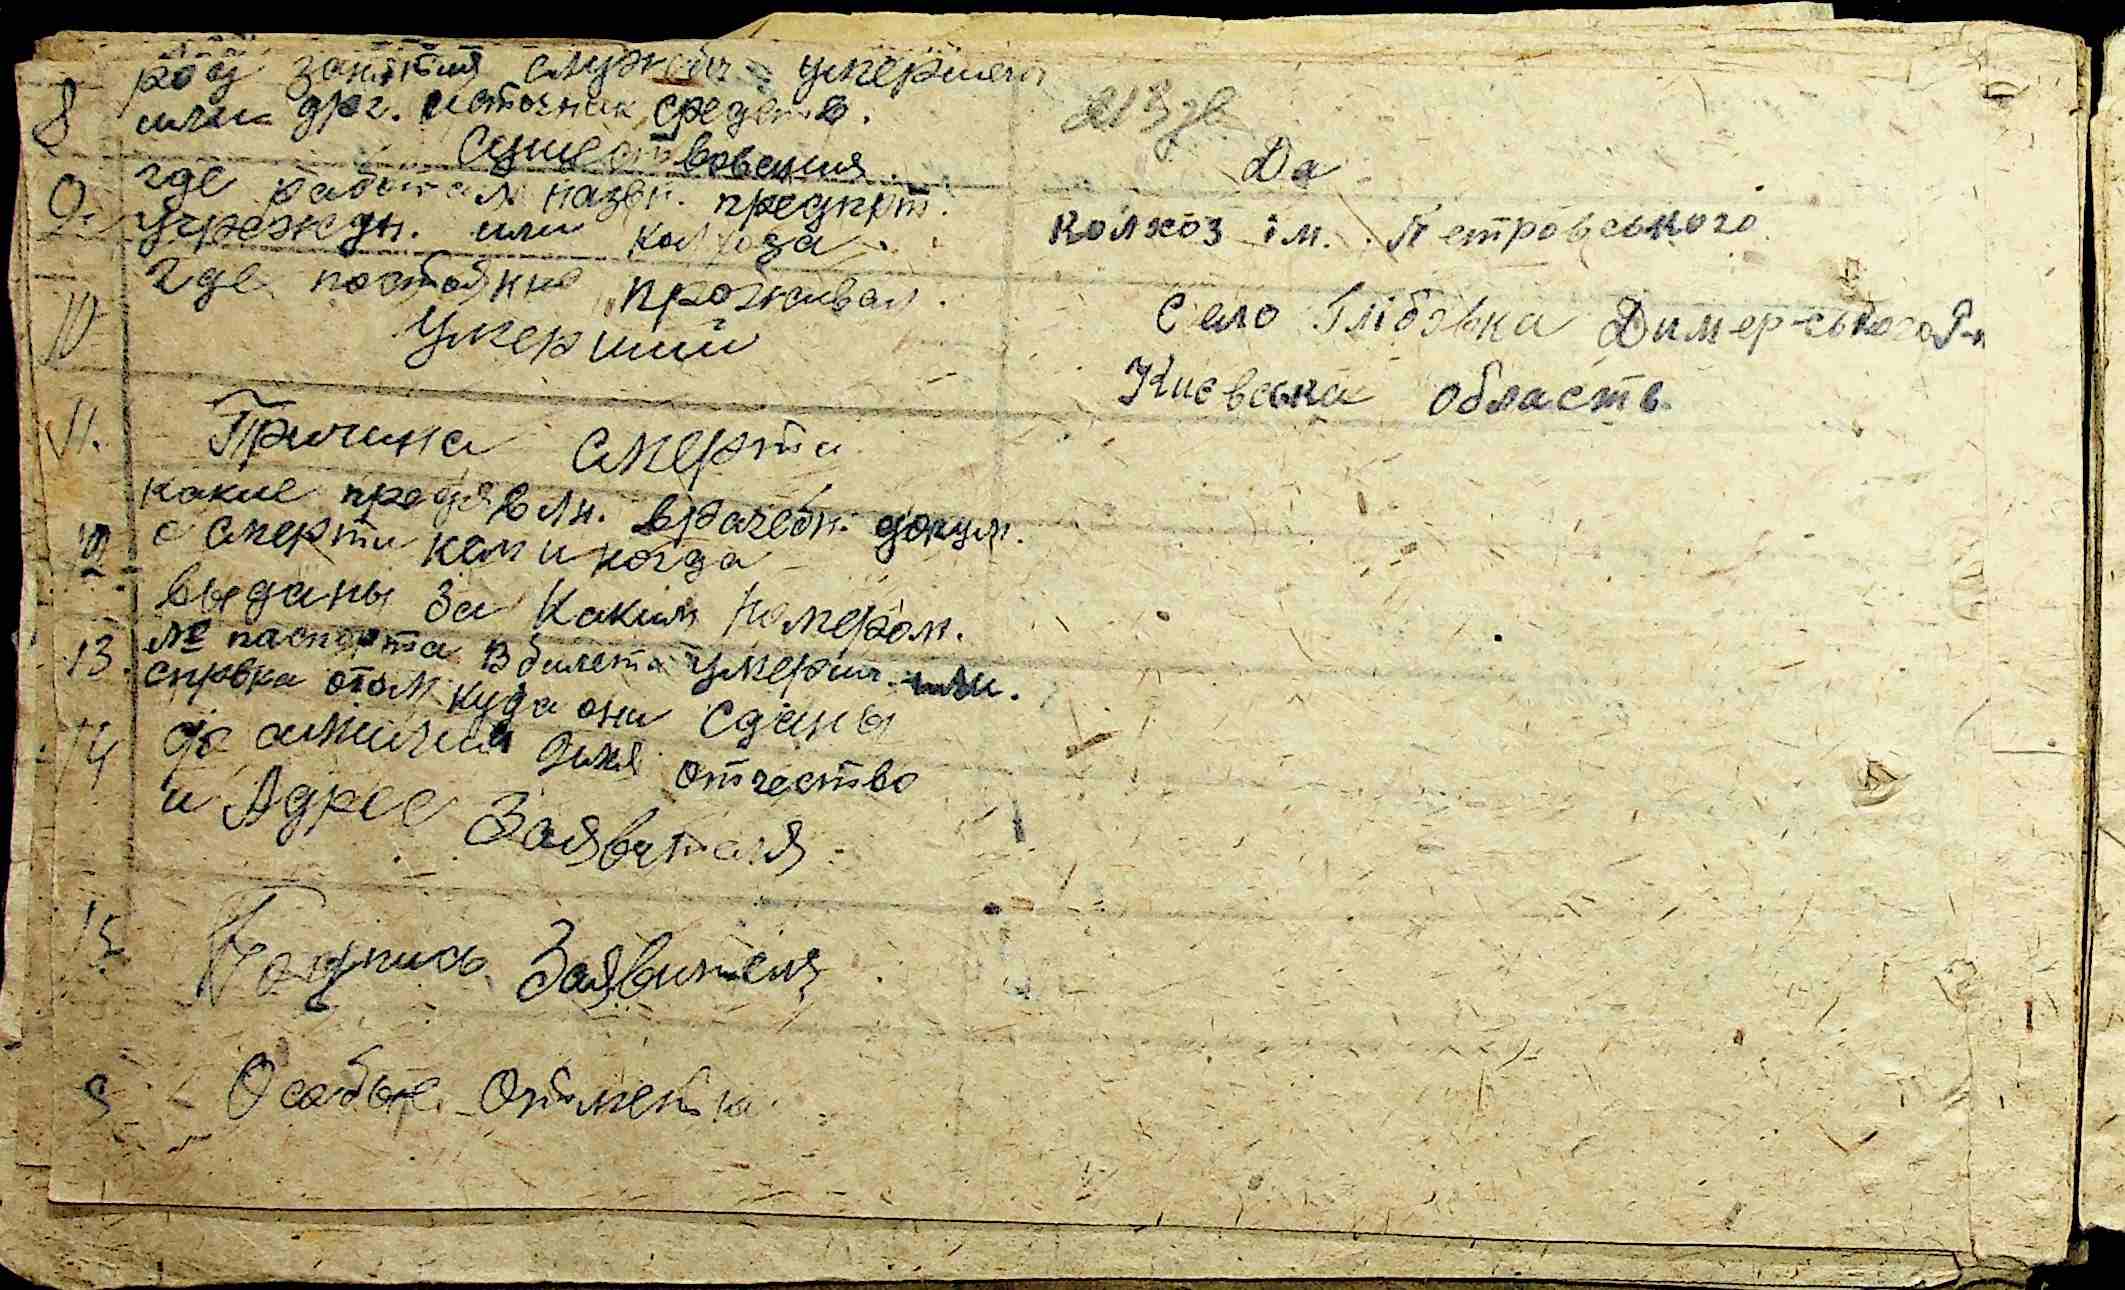 8 род занятия службы умершего
или дрг. источник средств.
существования.
Да
9. где работал назвн. предпрт.
учреждн. или колхоза
колхоз ім. Петровського
10 где постояно проживал.
умерший
Село Глібовка Димерського Р-н
Києвська область
11. Причина смерти
какие предявлн. врачебн. докум.
12. о смерти кем и когда
выданы за каким номером.
13. № паспорта в билета умерш. или.
спрвка отом куда они сданы
14 фамилия имя отчество
и Адрес Заявителя
15 Подпись Заявителя
Особые отметки